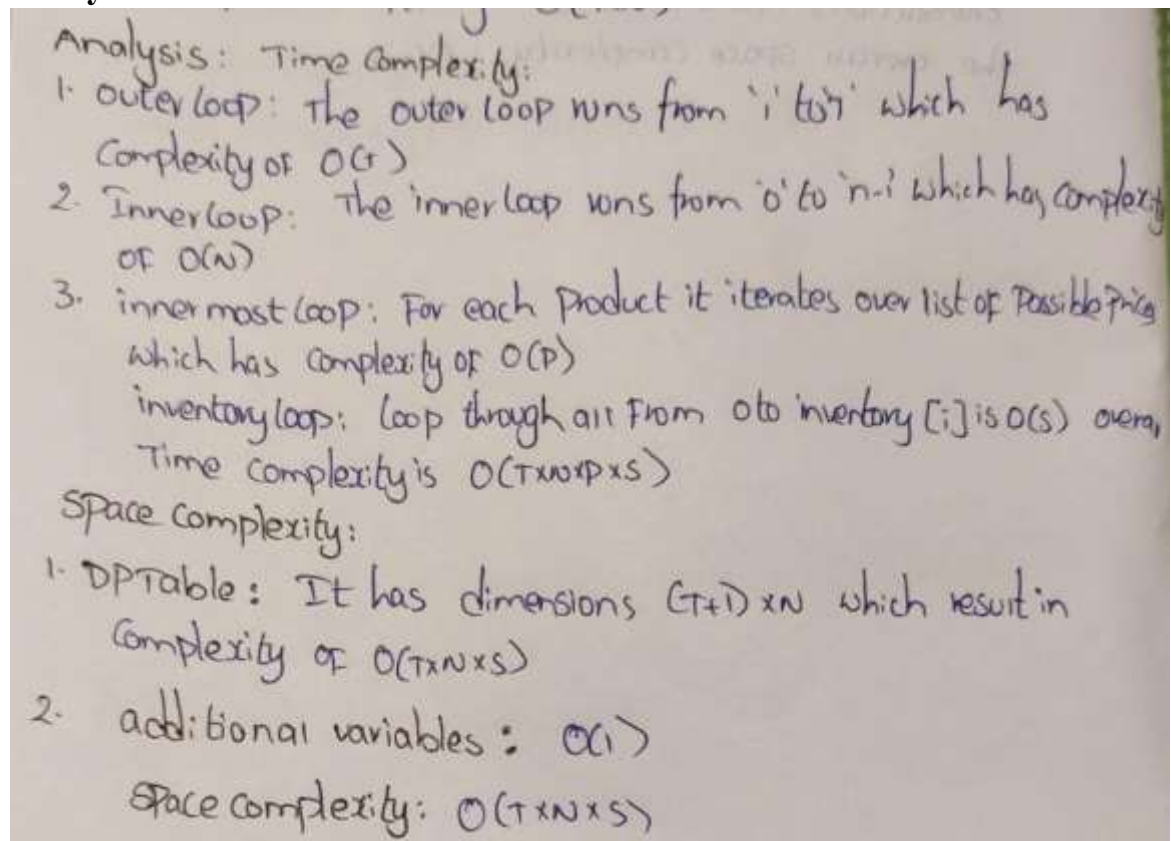 Analysis: Time Complexity:
1. outer loop: The outer loop runs from 'i' to 'T' which has
Complexity of O(T)
2. Inner loop: The inner loop runs from '0' to 'n-1' which has complexity
OF O(N)
3. inner most loop: For each product it iterates over list of Possible Prices
which has complexity of O(P)
inventory loop: Loop through all From 0 to inventory [i] is O(S)
Time complexity is O(T×N×P×S)
Space Complexity:
1. DPTable: It has dimensions (T+1)×N which result in
Complexity of O(T×N×S)
2. additional variables: O(1)
Space complexity: O(T×N×S)